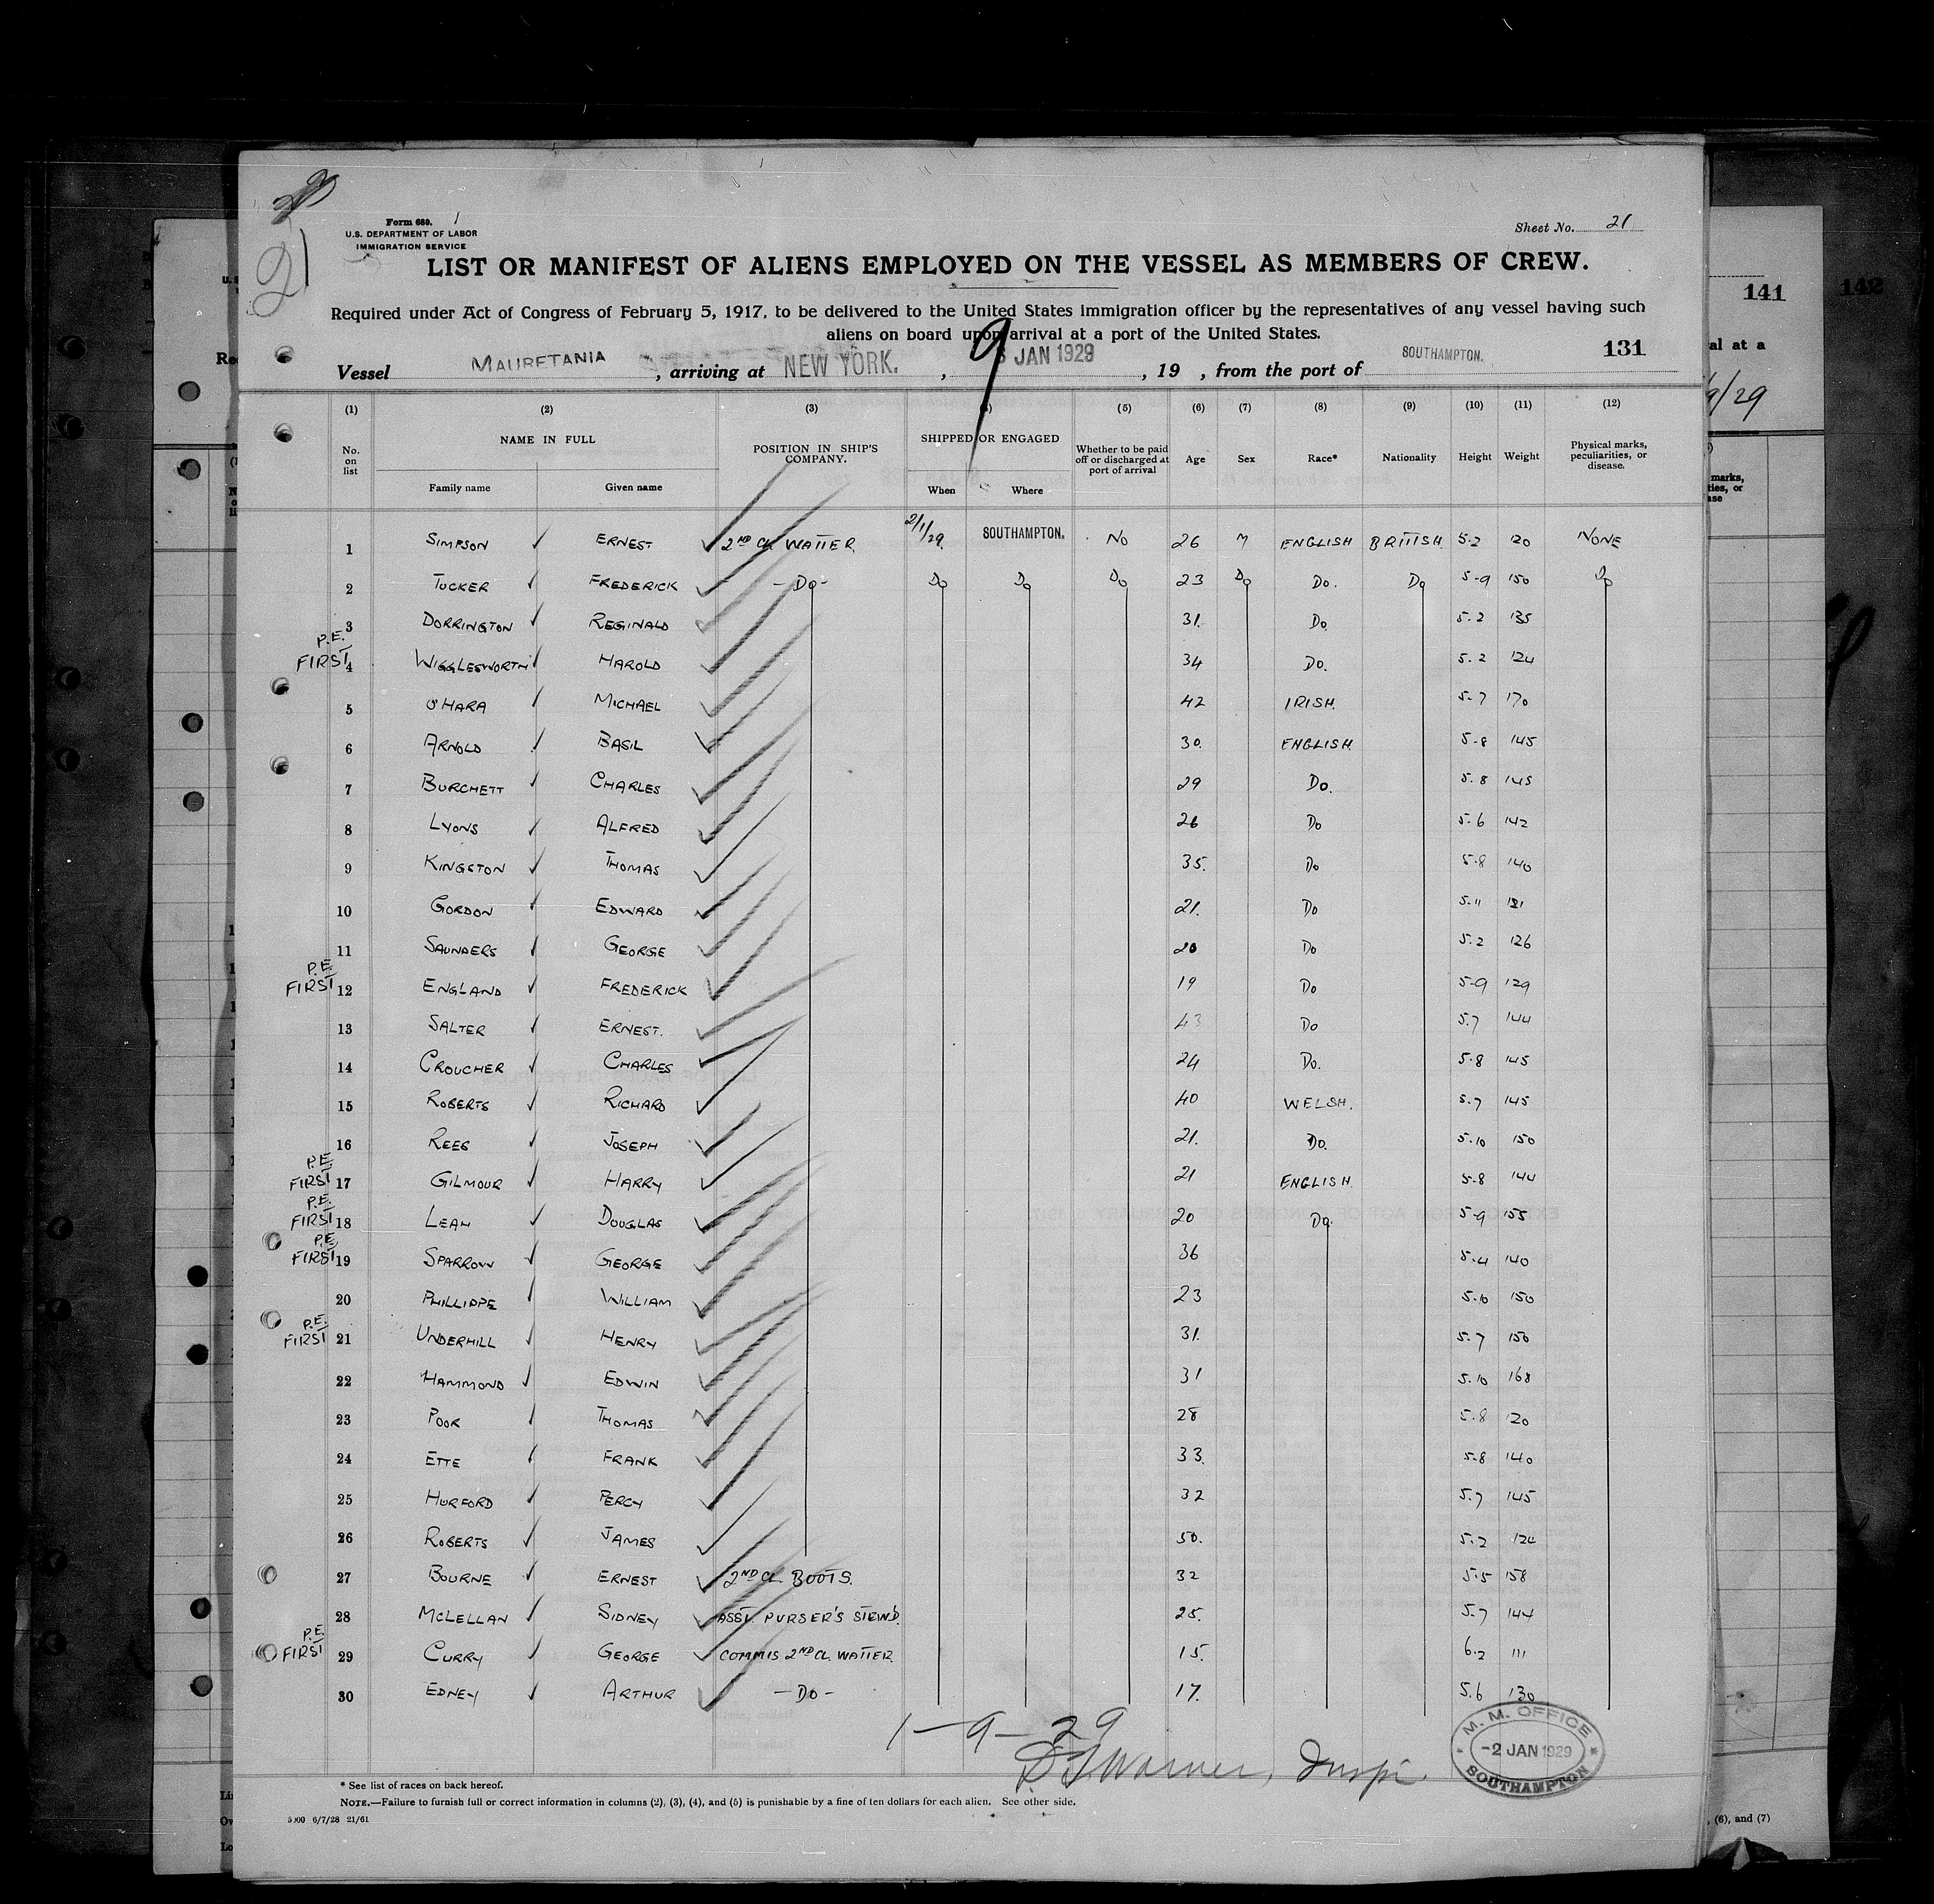 Form 680.
U.S. DEPARTMENT OF LABOR
IMMIGRATION SERVICE
Sheet No. 21
21
LIST OR MANIFEST OF ALIENS EMPLOYED ON THE VESSEL AS MEMBERS OF CREW.
Required under Act of Congress of February 5, 1917, to be delivered to the United States immigration officer by the representatives of any vessel having such
aliens on board upon arrival at a port of the United States.
131
Vessel MAURETANIA, arriving at NEW YORK., 9 JAN 1929, 19 , from the port of SOUTHAMPTON.
(1) (2) (3) (4) (5) (6) (7) (8) (9) (10) (11) (12)
No. on list NAME IN FULL Family name Given name POSITION IN SHIP'S COMPANY. SHIPPED OR ENGAGED When Where Whether to be paid off or discharged at port of arrival Age Sex Race* Nationality Height Weight Physical marks, peculiarities, or disease.
1 SIMPSON ERNEST 2ND CL WAITER. 2/1/29. SOUTHAMPTON. NO 26 M ENGLISH BRITISH. 5-2 120 NONE
2 TUCKER FREDERICK -DO- DO DO DO 23 DO DO. DO 5-9 150 DO
3 DORRINGTON REGINALD 31. DO 5.2 135
P.E. FIRST 4 WIGGLESWORTH HAROLD 34 DO. 5.2 124
5 O'HARA MICHAEL 42 IRISH. 5-7 170
6 ARNOLD BASIL 30. ENGLISH. 5-8 145
7 BURCHETT CHARLES 29 DO. 5.8 145
8 LYONS ALFRED 26 DO 5-6 142
9 KINGSTON THOMAS 35. DO 5-8 140
10 GORDON EDWARD 21. DO 5-11
11 SAUNDERS GEORGE 20 DO 5.2 126
P.E. FIRST 12 ENGLAND FREDERICK 19 DO 5-9 129
13 SALTER ERNEST. 43 DO 5.7 144
14 CROUCHER CHARLES 24 DO. 5.8 145
15 ROBERTS RICHARD 40 WELSH. 5.7 145
16 REES JOSEPH 21. DO. 5.10 150
P.E. FIRST 17 GILMOUR HARRY 21 ENGLISH. 5-8 144
P.E. FIRST 18 LEAH DOUGLAS 20 DO. 5-9 155
P.E. FIRST 19 SPARROW GEORGE 36 5.4 140
20 PHILLIPPE WILLIAM 23 5.10 150
P.E. FIRST 21 UNDERHILL HENRY 31. 5.7 150
22 HAMMOND EDWIN 31 5.10 168
23 POOR THOMAS 28 5.8 120
24 ETTE FRANK 33. 5-8 140
25 HURFORD PERCY 32 5.7 145
26 ROBERTS JAMES 50. 5.2 124
27 BOURNE ERNEST 2ND CL. BOOTS. 32 5.5 158
28 MCLELLAN SIDNEY ASST. PURSER'S STEW'D. 25. 5.7 144
P.E. FIRST 29 CURRY GEORGE COMMIS 2ND CL. WAITER. 15. 6.2 111
30 EDNEY ARTHUR -DO- 17. 5.6 130
1-9-29
Warner, Inspr.
M. M. OFFICE
-2 JAN 1929
SOUTHAMPTON
* See list of races on back hereof.
NOTE.—Failure to furnish full or correct information in columns (2), (3), (4), and (5) is punishable by a fine of ten dollars for each alien. See other side.
6/7/28 21/61
141
142
al at a
9/29
marks,
ties, or
ase
, (6), and (7)